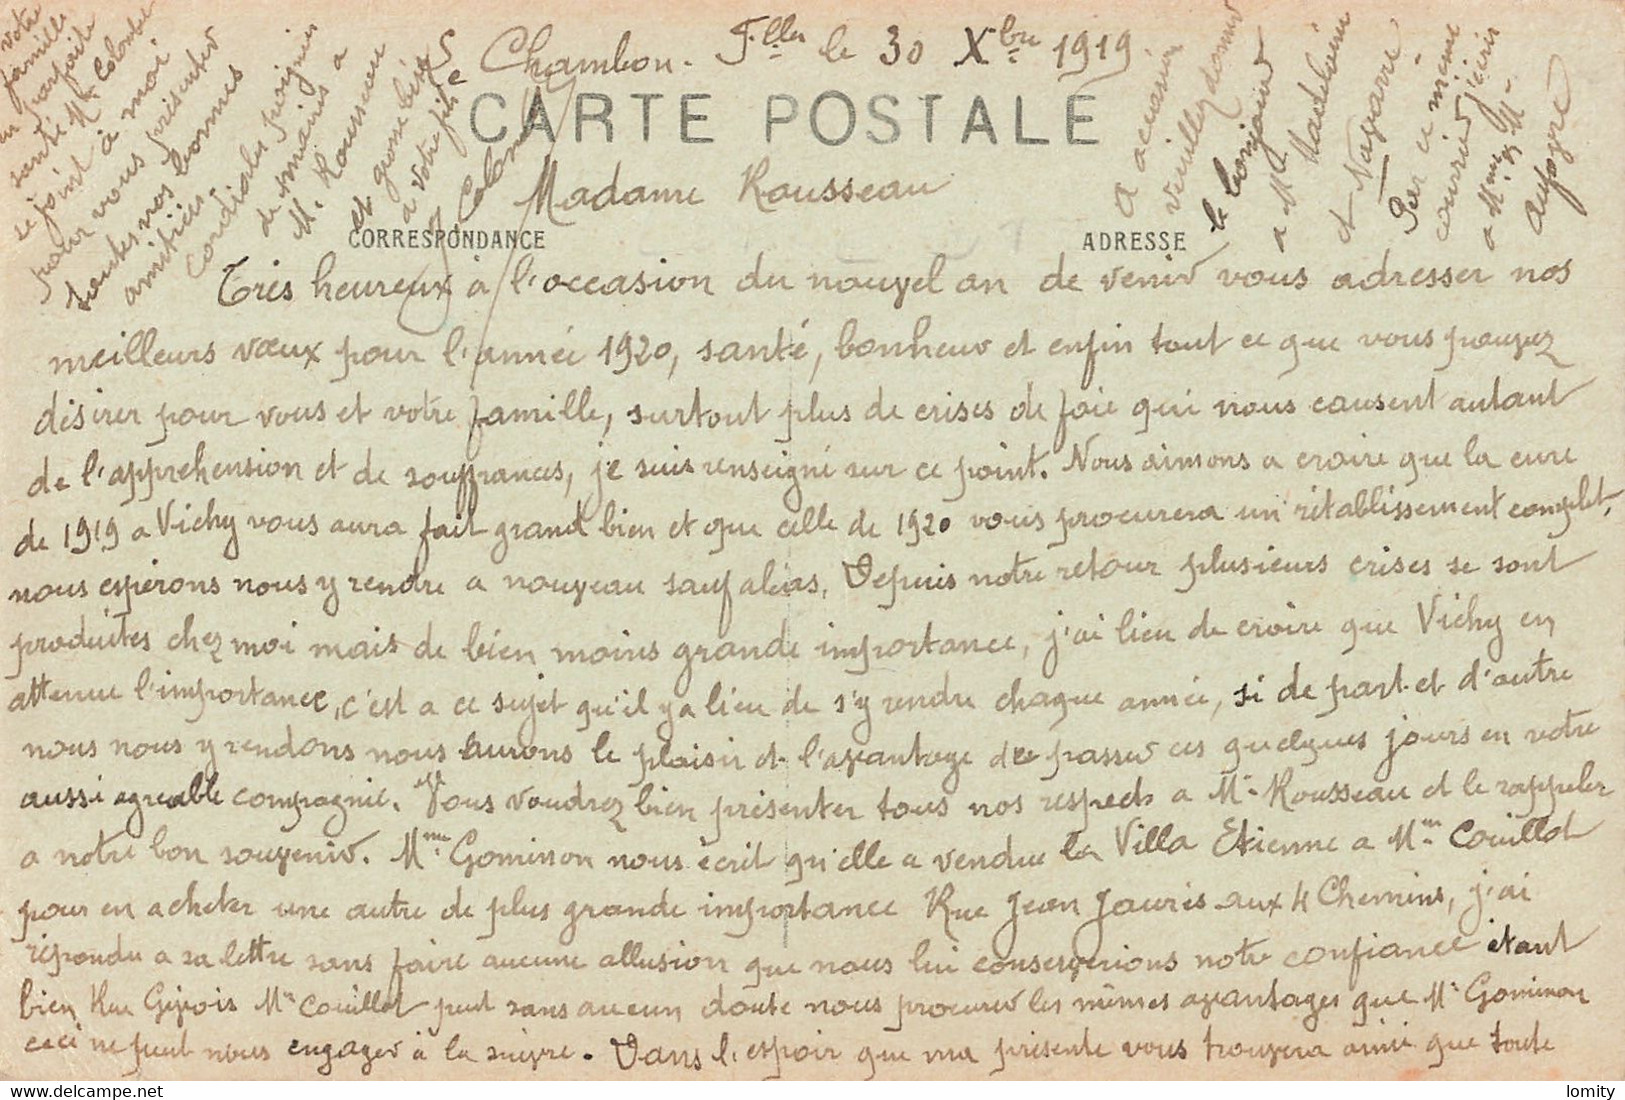 Chambon. F.lles le 30 Xbre 1919
CARTE POSTALE
Madame Rousseau
CORRESPONDANCE
ADRESSE
Très heureux à l'occasion du nouvel an de venir vous adresser nos
meilleurs vœux pour l'année 1920, santé, bonheur et enfin tout ce que vous pouvez
désirer pour vous et votre famille, surtout plus de crises de foie qui nous causent autant
de l'appréhension et de souffrances, je suis renseigné sur ce point. Nous aimons a croire que la cure
de 1919 a Vichy vous aura fait grand bien et que celle de 1920 vous procurera un rétablissement complet,
nous espérons nous y rendre a nouveau sauf aléas. Depuis notre retour plusieurs crises se sont
produites chez moi mais de bien moins grande importance, j'ai lieu de croire que Vichy en
attenue l'importance, c'est a ce sujet qu'il y a lieu de s'y rendre chaque année, si de part et d'autre
nous nous y rendons nous aurons le plaisir et l'avantage de passer ces quelques jours en votre
aussi agreable compagnie. Vous voudrez bien présenter tous nos respects a Mr Rousseau et le rappeler
a notre bon souvenir. Mme Gominon nous écrit qu'elle a vendue la Villa Etienne a Mme Couillot
pour en acheter une autre de plus grande importance Rue Jean Jaurès aux 4 Chemins, j'ai
répondu a sa lettre sans faire aucune allusion que nous lui conserverions notre confiance étant
bien Rue Mme Couillot peut sans aucun doute nous procurer les mêmes avantages que Me Gominon
ceci ne peut nous engager à la suivre. Dans l'espoir que ma présente vous trouvera ainsi que toute
votre
famille
en parfaite
santé Me Colombe
se joint à moi
pour vous présenter
toutes nos bonnes
amitiés
cordiales poignées
de mains a
M. Rousseau
et grosse bise
a votre fille
A Colomb
A l'occasion
veuillez donner
le bonjour
a Me Madeleine
et Navarre
Par ce même
courrier j'écris
a Mme et M.
Aufavre